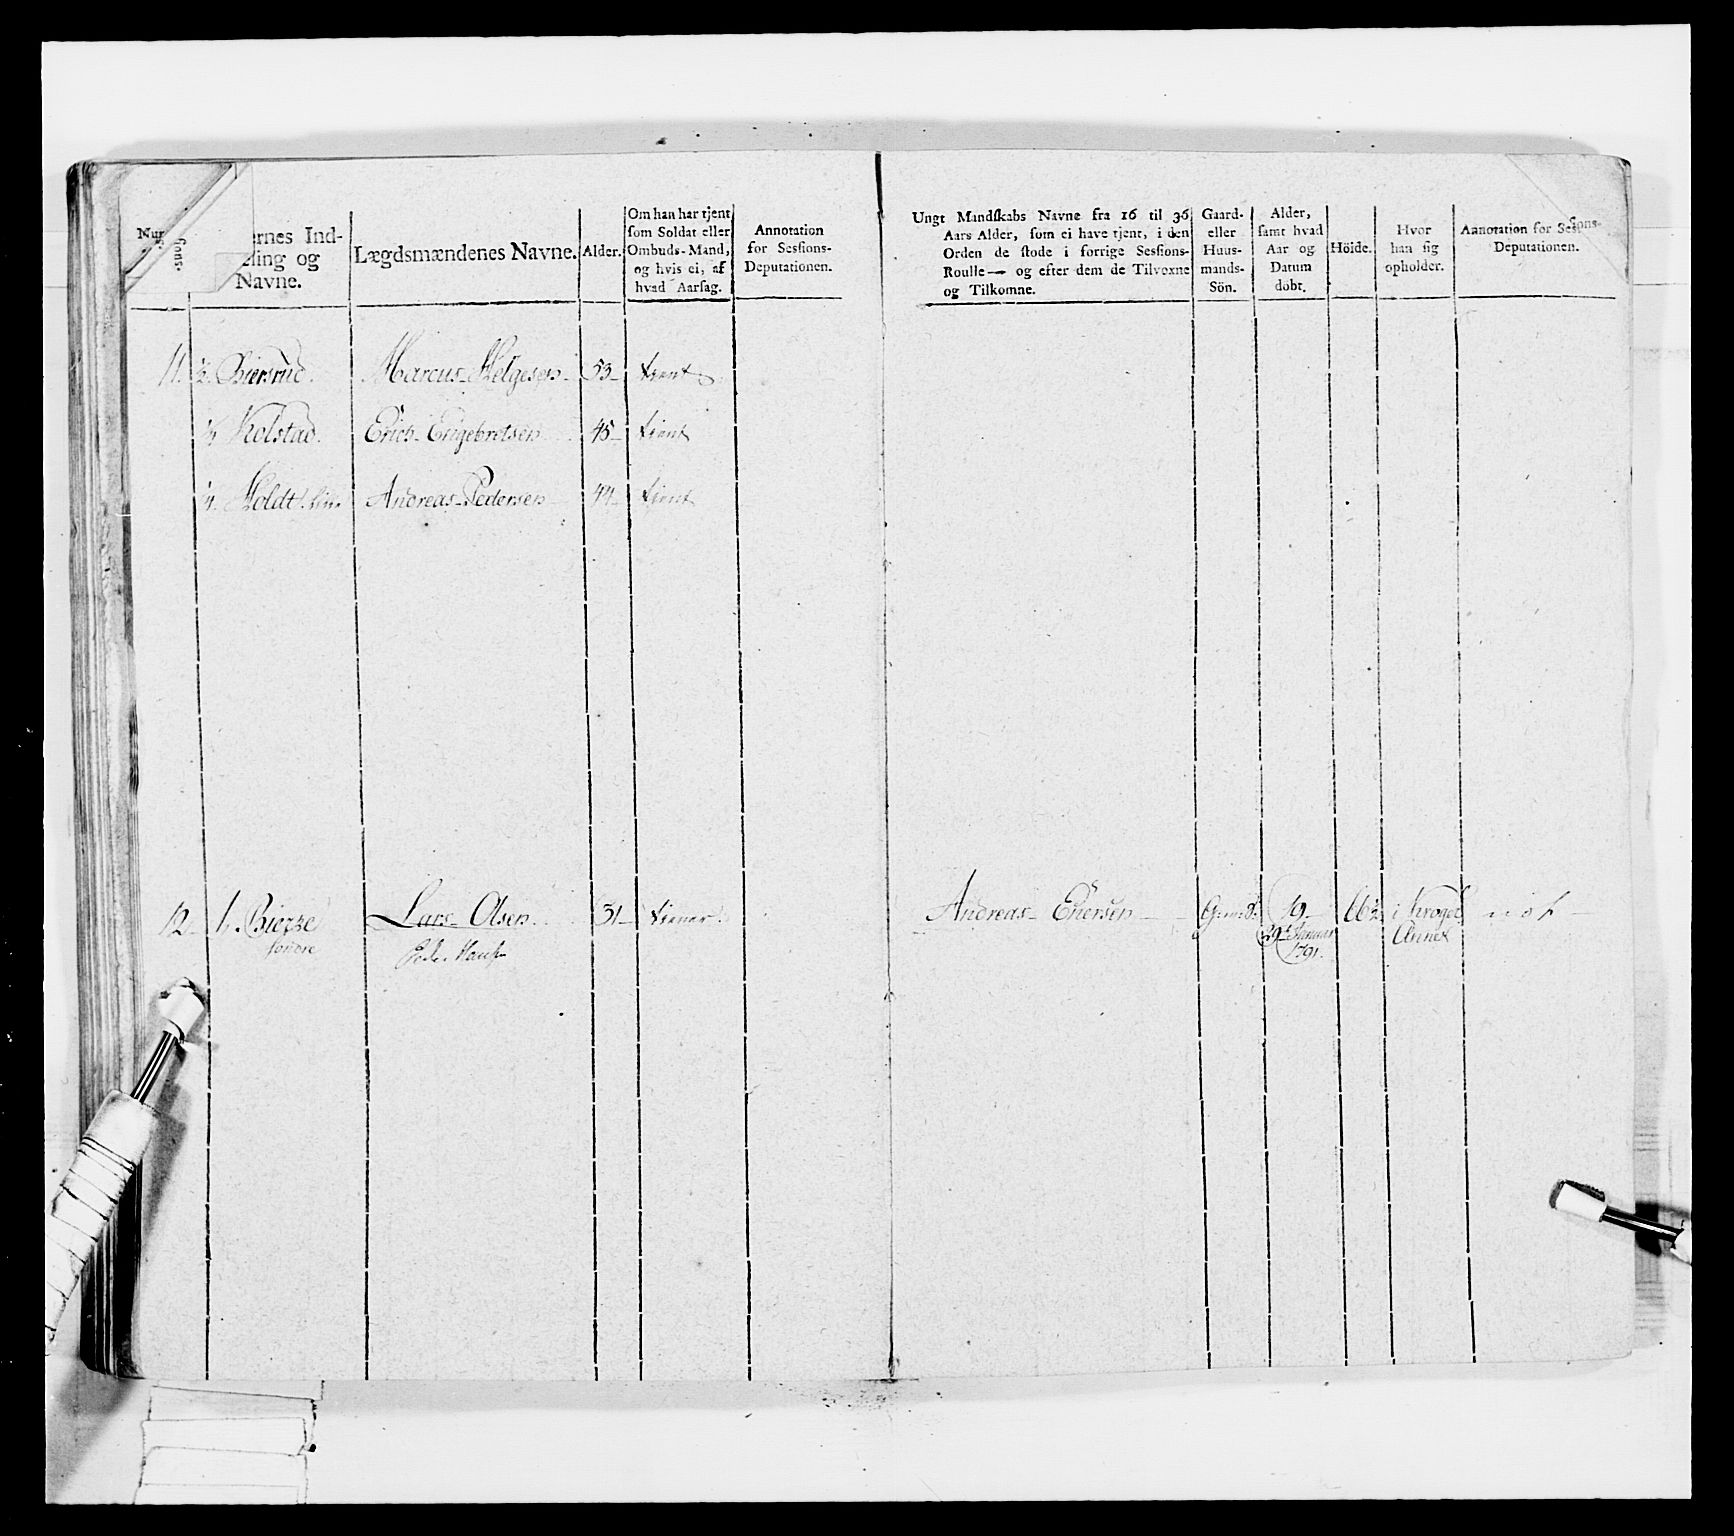 Lægdsmændenes Navne.
Alder.
Om han har tjent
som Soldat eller
Ombuds-Mand,
og hvis ei, af
hvad Aarsag.
Annotation
for Sessions-
Deputationen.
Ungt Mandskabs Navne fra 16 til 36
Aars Alder, som ei have tjent, i den
Orden de stode i forrige Sessions-
Roulle — og efter dem de Tilvoxne
og Tilkomne.
Gaard-
eller
Huus-
mands-
Sön.
Alder,
samt hvad
Aar og
Datum
dobt.
Höide.
Hvor
han sig
opholder.
Annotation for Sessions-
Deputationen.
ernes Ind-
ling og
Navne.
11. ½. Biersrud. Marcus Helgesen 53 tient
¼ Kolstad. Erich Engebretsen 45 tient
¼. Holdt Andreas Pedersen 44 tient
12 1. Bierge Lars Olsen 31 tiener. Andreas Enersen 19
søndre
29de Januar Annex
1791.